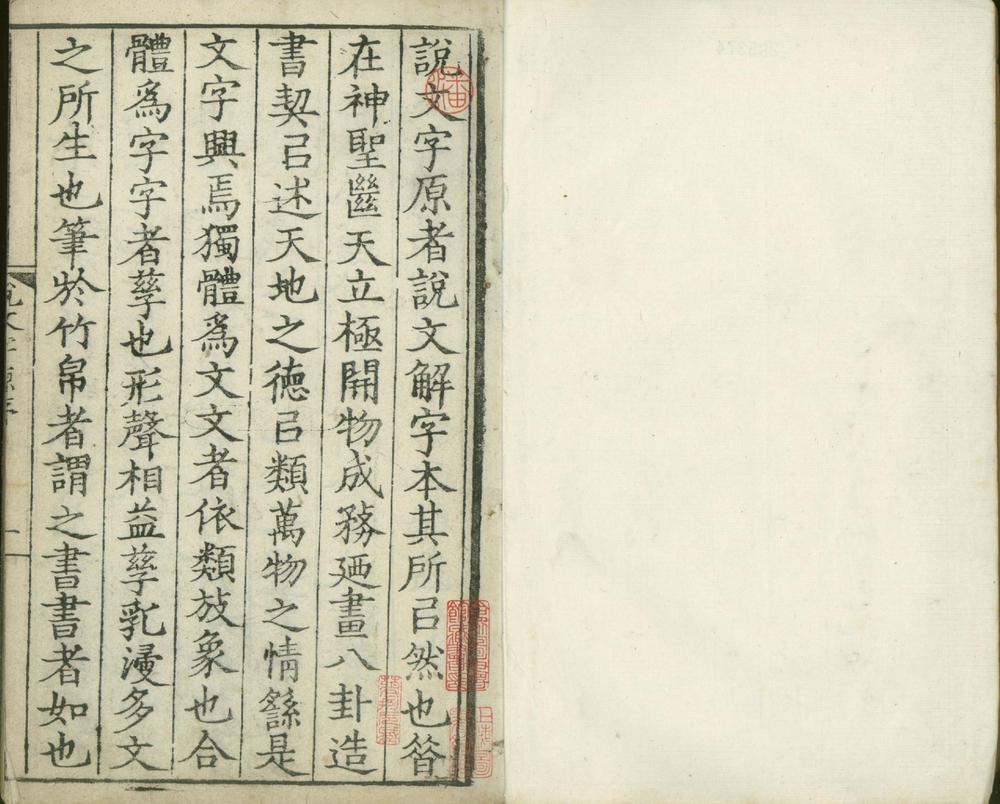 說文字原者說文解字本其所㠯然也昝
在神聖繼天立極開物成務廼畫八卦造
書契㠯述天地之徳㠯類萬物之情繇是
文字興焉獨體爲文文者依類放象也合
體爲字字者孳也形聲相益孳乳漫多文
之所生也筆於竹帛者謂之書書者如也